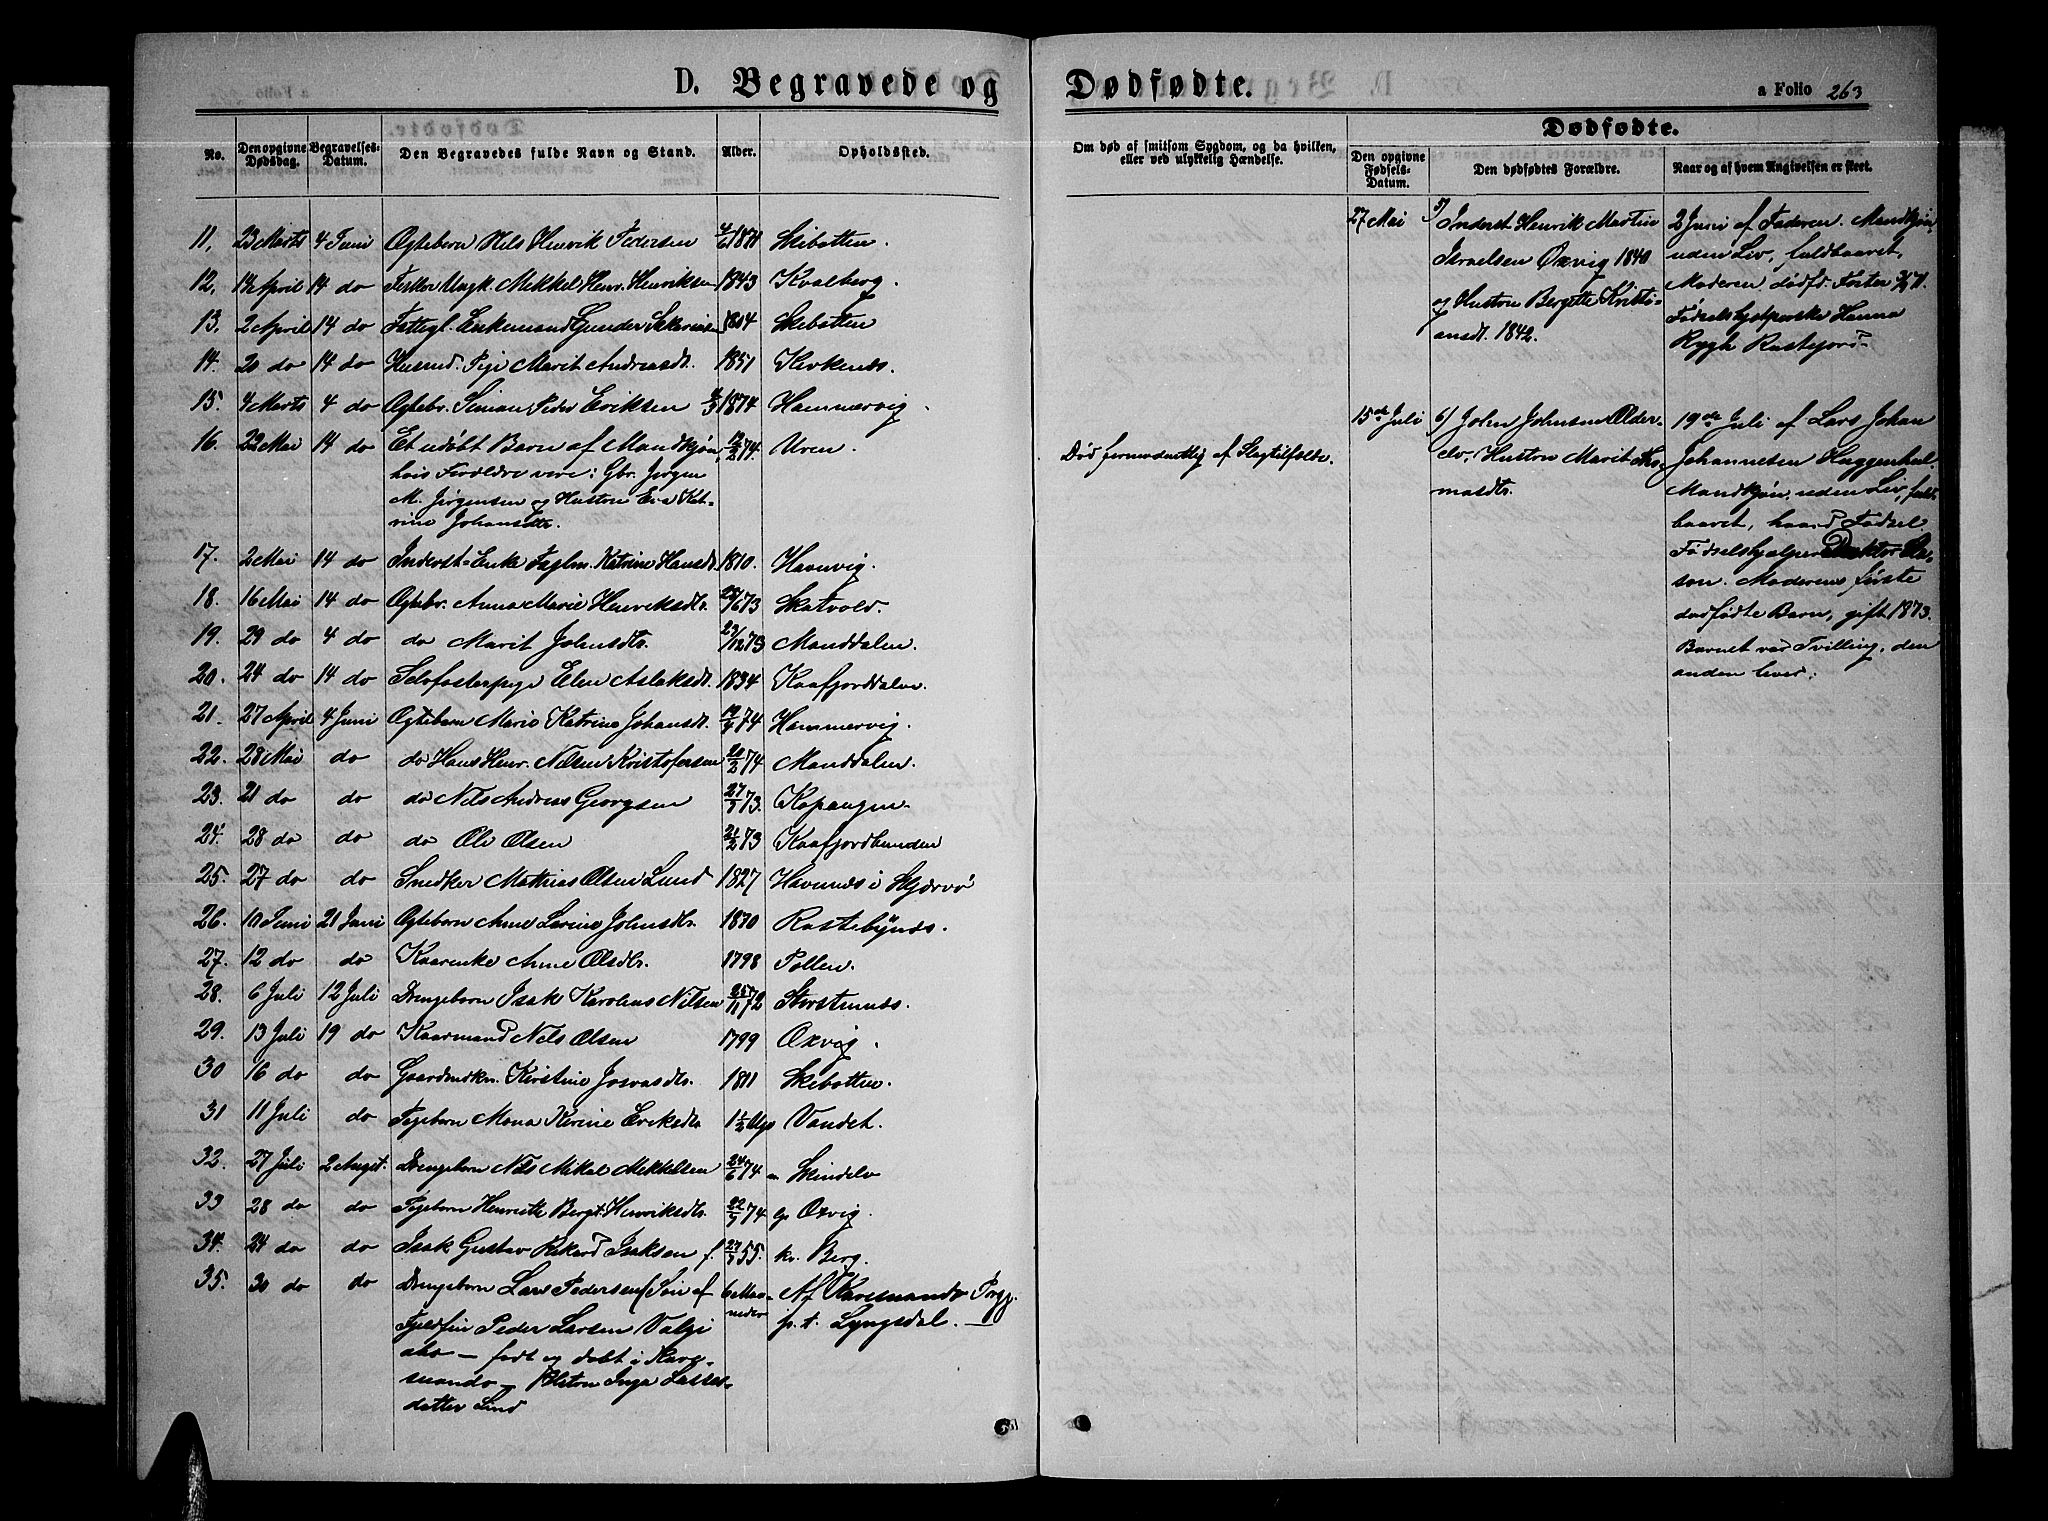 D. Begravede og
No.
Den opgivne Dødsdag.
Begravelses-Datum.
Den Begravedes fulde Navn og Stand.
Alder.
Opholdssted.
11. 23 Marts 4 Juni Ægtebarn Nils Henrik Pedersen 4/6 1871 Skibotten.
12. 14 April 14 do Fisker Ungk. Mikkel Henr. Henriksen 1843 Kvalberg.
13. 2 April 14 do Fattigl. Enkemand Gunder 1804 Skibotten
14. 20 do 14 do Husmd. Pige Marit Andreasdt. 1851 Kirkenæs.
15. 4 Marts 4 do Ægtebr. Simon Peder Eriksen 1874 Hammervig.
16. 22 Mai 14 do Et udøbt Barn af Mandkjøn, 12/2 74. Uren.
hvis Forældre vare: Gbr. Jørgen
M. Jørgensen og Hustru Eva Kat-
rine Johansdtr.
17. 2 Mai 14 do Inderst-Enke Katrine Hansdt. 1810. Havnvig.
18. 16 Mai 14 do Ægtebr. Anna Marie Henriksdtr. 23/6 73 Skatvold.
19. 29 do 4 do do Marit Johnsdtr. 29/12 73 Manddalen.
20. 24 do 14 do Elen Aslaksdt. 1834 Kaafjorddalen.
21. 27 April 4 Juni Ægtebarn Marie Katrine Johansdt. 19/4 74 Hammervig.
22. 28 Mai do do Hans Henr. Nilsen Kristofersen 20/2 74 Manddalen.
23. 21 do do do Nils Andreas Georgsen 27/7 73. Kopangen.
24. 28 do do do Ole Olsen 21/2 73 Kaafjordbunden
25. 27 do do Snedker Mathias Olsen Lund 1827 Havnnæs i Skjærvø
26. 10 Juni 21 Juni Ægtebarn Ane Larine Johnsdtr. 1870 Rastebynæs.
27. 12 do do Kaarenke Anne Olsdtr. 1798 Pollen.
28. 6 Juli 12 Juli Drengebarn Isak Karolius Nilsen 25/11 72 Storstennæs.
29. 13 Juli 19 do Kaarmand Nils Olsen 1799 Oxvig.
30 16 do do Gaardmdkn. Kirstine Josvasdtr. 1811 Skibotten.
31 11 Juli do Pigebarn Mona Kirine Eriksdtr 1 1/2 Uge Vandet.
32. 27 Juli 2 August. Drengebarn Nils Mikal Mikkelsen 24/6 74 Skindelv
33 28 do do Pigebarn Henriette Bergt. Henriksdtr. 22/7 74 Oxvig.
34. 24 do do Isak Gustav Rikard Isaksen f. 27/7 55. kv. Berg.
35. 30 do do Drengebarn Lars Pedersen (Søn af 6 Maa-neder Af Karesuando Prgj.
Fjeldfin Peder Larsen Valgi p. t. Lyngsdal.
født og døbt i Kare-
suando – Hustru Inga Lasse-
datter Lind
Dødfødte.
a Folio 263
Om død af smitsom Sygdom, og da hvilken, eller ved ulykkelig Hændelse.
Dødfødte.
Den opgivne Fødsels-Datum.
Den dødfødtes Forældre.
Naar og af hvem Angivelsen er skeet.
Død formodentlig af Slagtilfælde.
27 Mai
5) Inderst Henrik Martin
Israelsen Oxvig 1840
og Hustru Bergitte Kristi-
ansdt. 1842.
2 Juni af Faderen. Mandkjøn,
uden Liv, fuldbaaret,
Moderen dødfd. Foster 71.
Fødselshjælperske Hanna
Rygh Rastefjord
15de Juli
6) John Johnsen Older-
elv, Hustru Marit Tho-
masdtr.
19de Juli af Lars Johan
Johannesen Huggenhul.
Mandkjøn, uden Liv, fuld-
baaret, haard Fødsel.
Fødselshjælper Doktor
son. Moderens første
dødfødte Barn, gift 1873.
Barnet var Tvilling, den
anden lever.